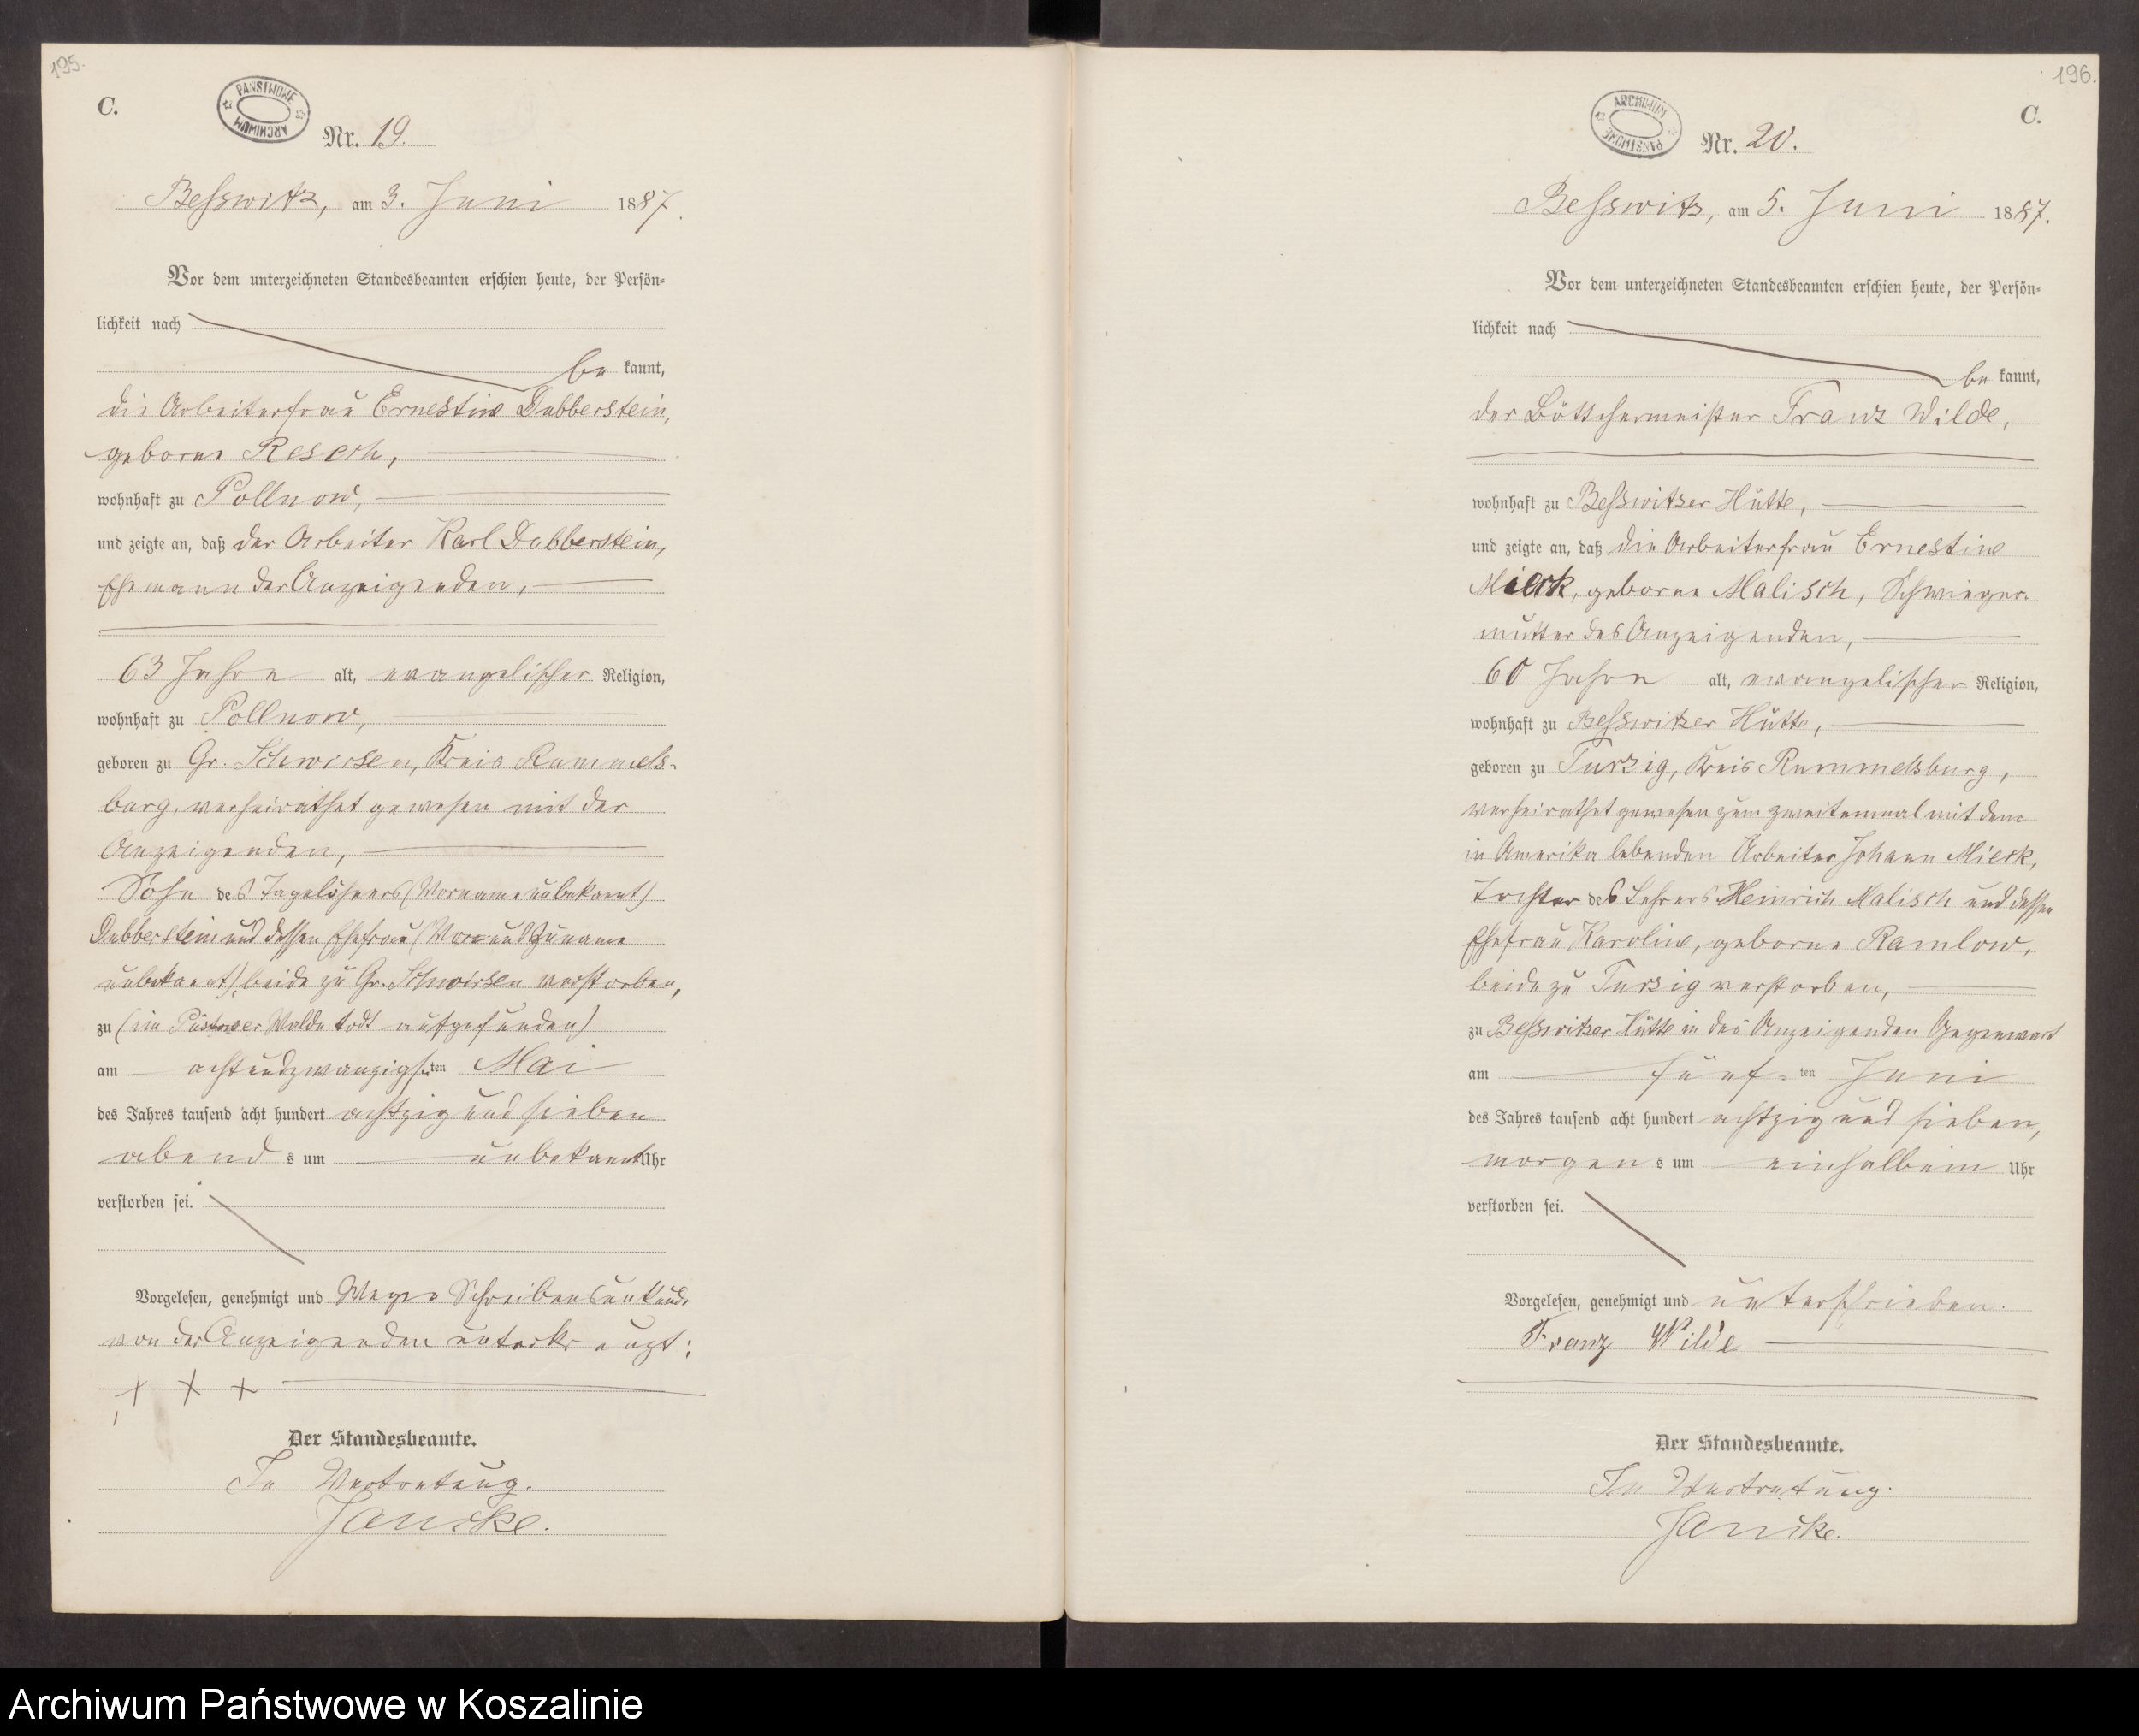 195.
C.
PAŃSTWOWE
ARCHIWUM
Nr. 19.
Beßwitz, am 3. Juni 1887.
Vor dem unterzeichneten Standesbeamten erschien heute, der Persön-
lichkeit nach
be kannt,
die Arbeiterfrau Ernestine Dubberstein,
geborne Resech,
wohnhaft zu Pollnow,
und zeigte an, daß der Arbeiter Karl Dubberstein,
Ehemann der Anzeigenden,
63 Jahre alt, evangelischer Religion,
wohnhaft zu Pollnow,
geboren zu Gr. Schwirsen, Kreis Rummels-
burg, verheirathet gewesen mit der
Anzeigenden,
Sohn des Tagelöhners (Vorname unbekannt)
Dubberstein und dessen Ehefrau (Vor und Zuname
unbekannt), beide zu Gr. Schwirsen verstorben,
zu (im Püstower Walde todt aufgefunden)
am achtundzwanzigsten Mai
des Jahres tausend acht hundert achtzig und sieben
abend s um unbekannt Uhr
verstorben sei.
Vorgelesen, genehmigt und Wegen Schreibensunkunde
von der Anzeigenden unterkreuzt:
+ + +
Der Standesbeamte.
In Vertretung.
Jancke.
196.
C.
ARCHIWUM
PAŃSTWOWE
Nr. 20.
Beßwitz, am 5. Juni 1887.
Vor dem unterzeichneten Standesbeamten erschien heute, der Persön-
lichkeit nach
be kannt,
der Böttchermeister Franz Wilde,
wohnhaft zu Beßwitzer Hütte,
und zeigte an, daß die Arbeiterfrau Ernestine
Mierk, geborne Malisch, Schwieger-
mutter des Anzeigenden,
60 Jahre alt, evangelischer Religion,
wohnhaft zu Beßwitzer Hütte,
geboren zu Turzig, Kreis Rummelsburg,
verheirathet gewesen zum zweitenmal mit dem
in Amerika lebenden Arbeiter Johann Mierk,
Tochter des Lehrers Heinrich Malisch und dessen
Ehefrau Karoline, geborne Ramlow,
beide zu Turzig verstorben,
zu Beßwitzer Hütte in des Anzeigenden Gegenwart
am fünf-ten Juni
des Jahres tausend acht hundert achtzig und sieben,
morgen s um einhalbein Uhr
verstorben sei.
Vorgelesen, genehmigt und unterschrieben.
Franz Wilde
Der Standesbeamte.
In Vertretung.
Jancke.
Archiwum Państwowe w Koszalinie